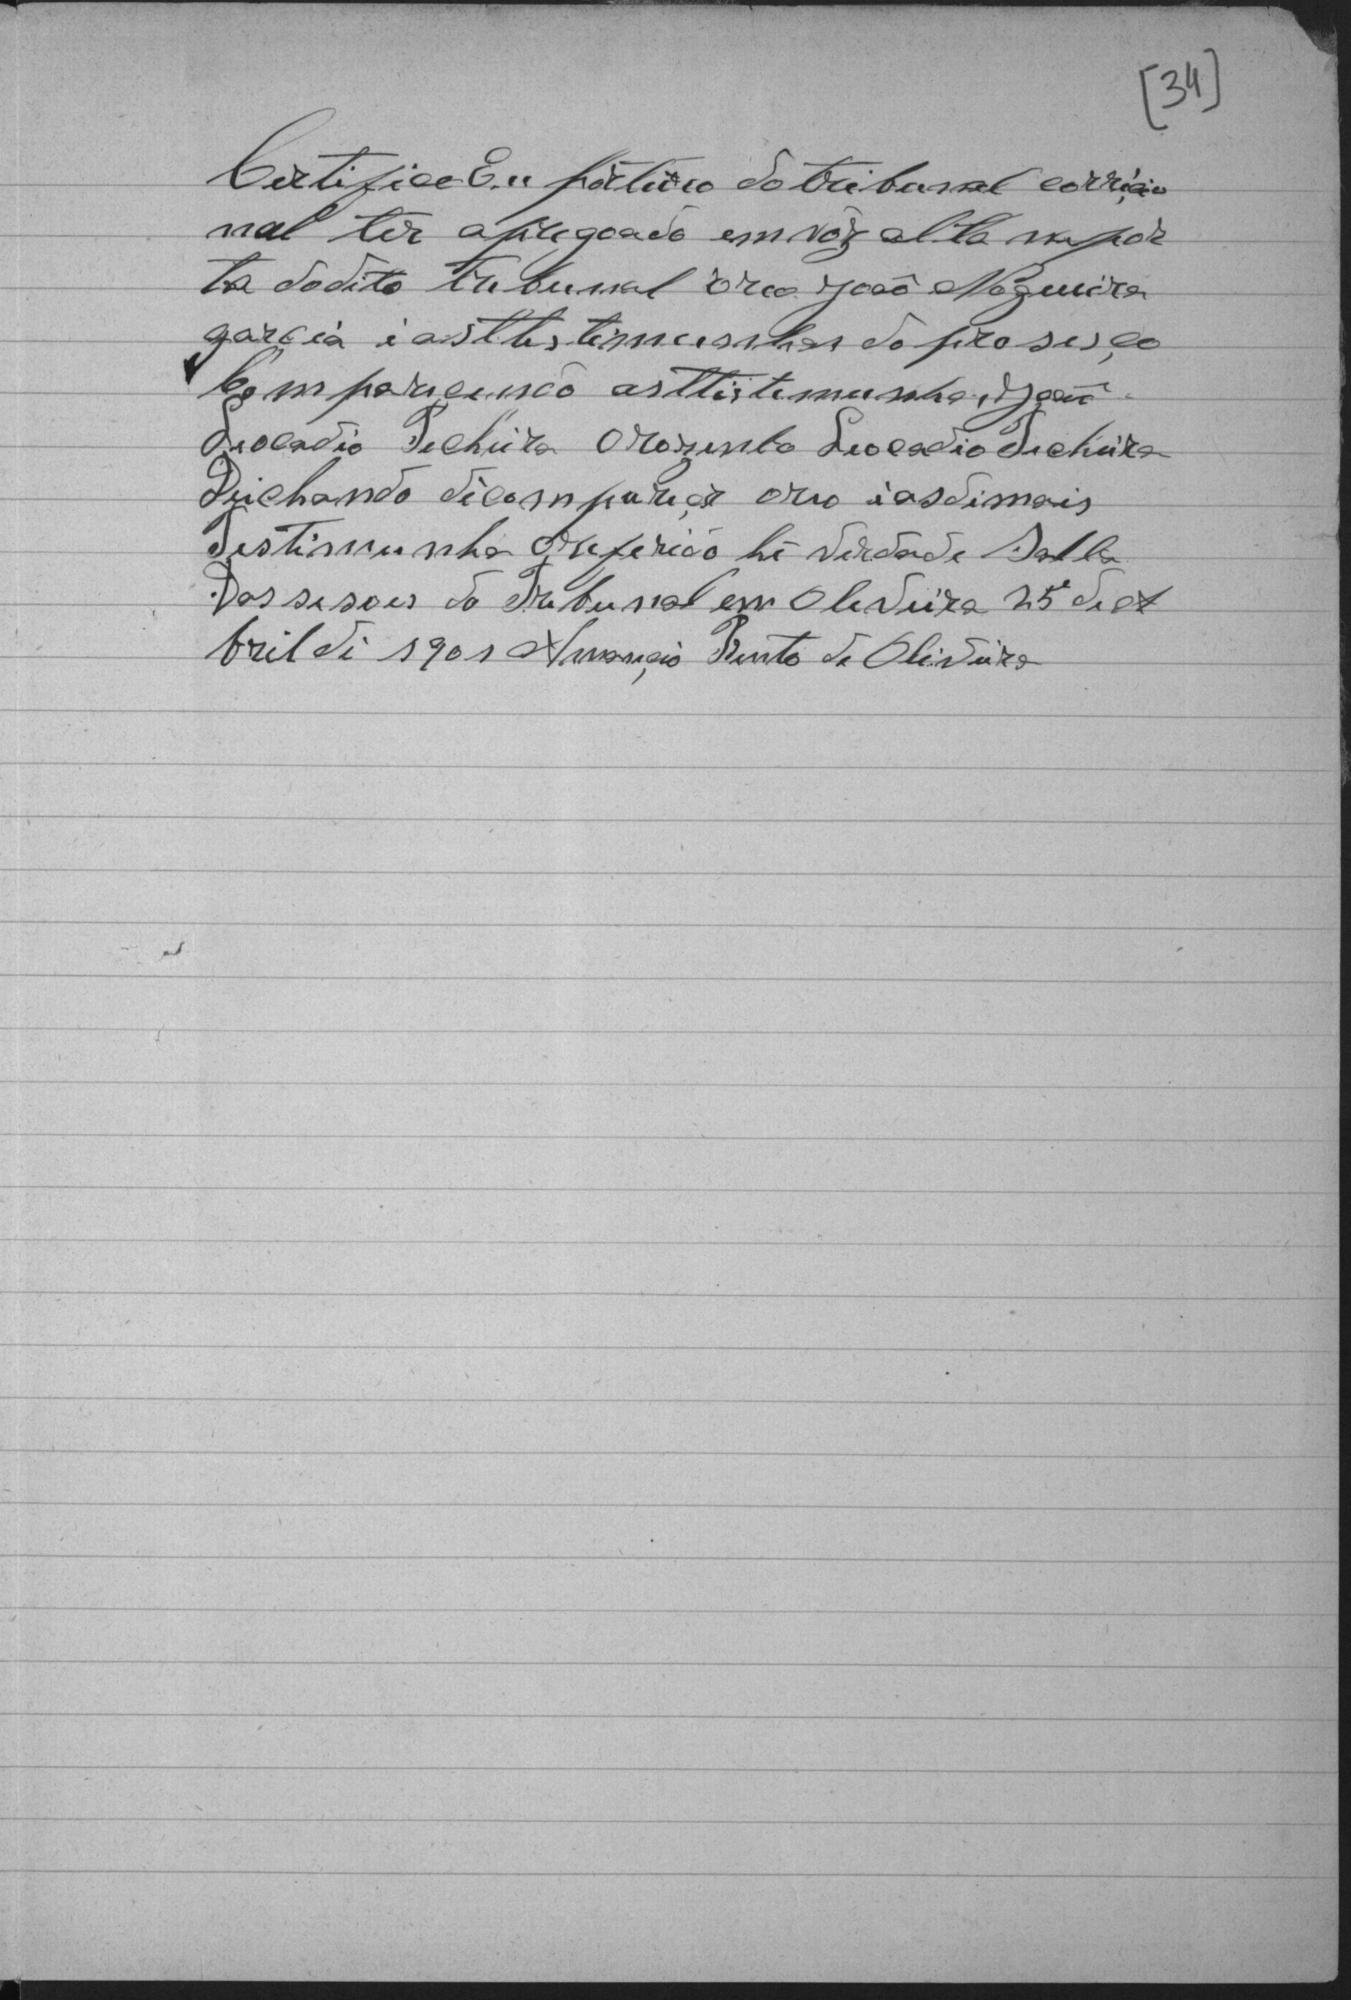 [34]
Certifico Eu pórteiro do tribunal corriçio
nal ter apregoado em vóz alta na por
ta dodito tribunal oreo Joaõ Nogueira
garcia i asttestimunhas do prosesço
Comparecendo asttestemunhas Joaõ
Leocadio Techeira Orozimbo Leocadio Techeira
Deichando dicompareçer oreo i asdimais
Testimunha Oreferido hé verdade Salla
Das sesoes do Tribunal em Oliveira 25 de A
bril di 1901 Amançio Pinto de Oliveira